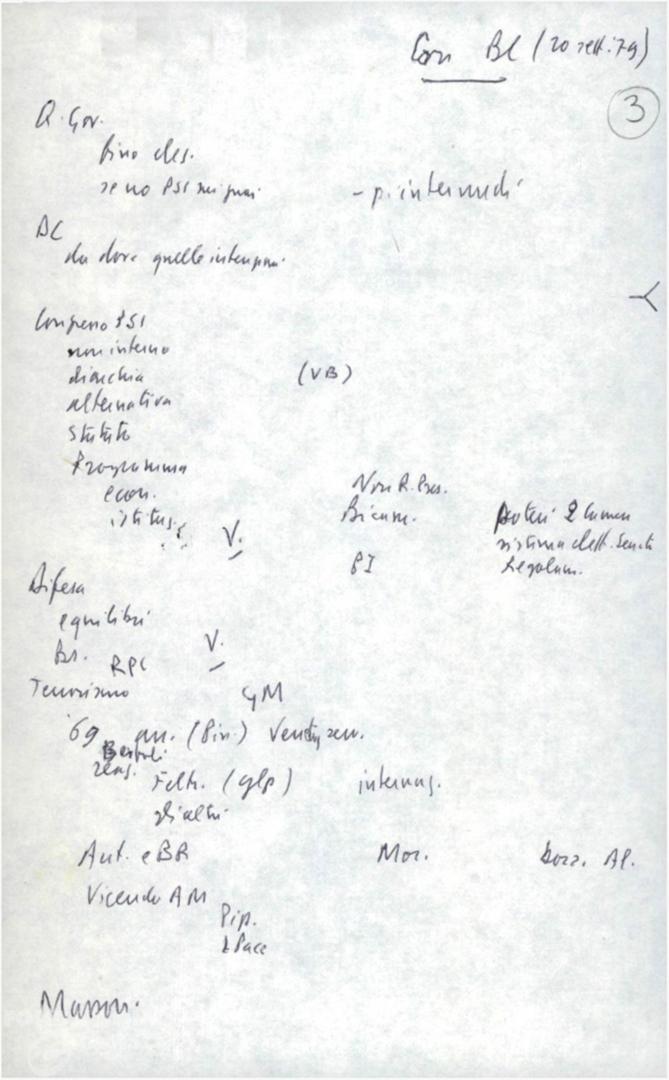 Con BC (20 sett. 79)
3
Q. Gov.
fino
se no PSI nei guai - p. intermedi
DC
da dove quelle intenzioni
Congresso PSI
non interno
diarchia (VB)
alternativa
Statuto
Programma
econ. Non R. Pres.
istituz. V. Bicam. poteri 2 Camere
sistema elett. Senato
PI Regolam.
Difesa
equilibri
Br. RPC V.
Terrorismo GM
'69 an. (Pin.) Ventu, zen.
Bertoli
Feltr. (glp) internaz.
gli altri
Aut. e BR Mor. Dozz. Al.
Vicenda AM
Pip.
Pace
Masson.